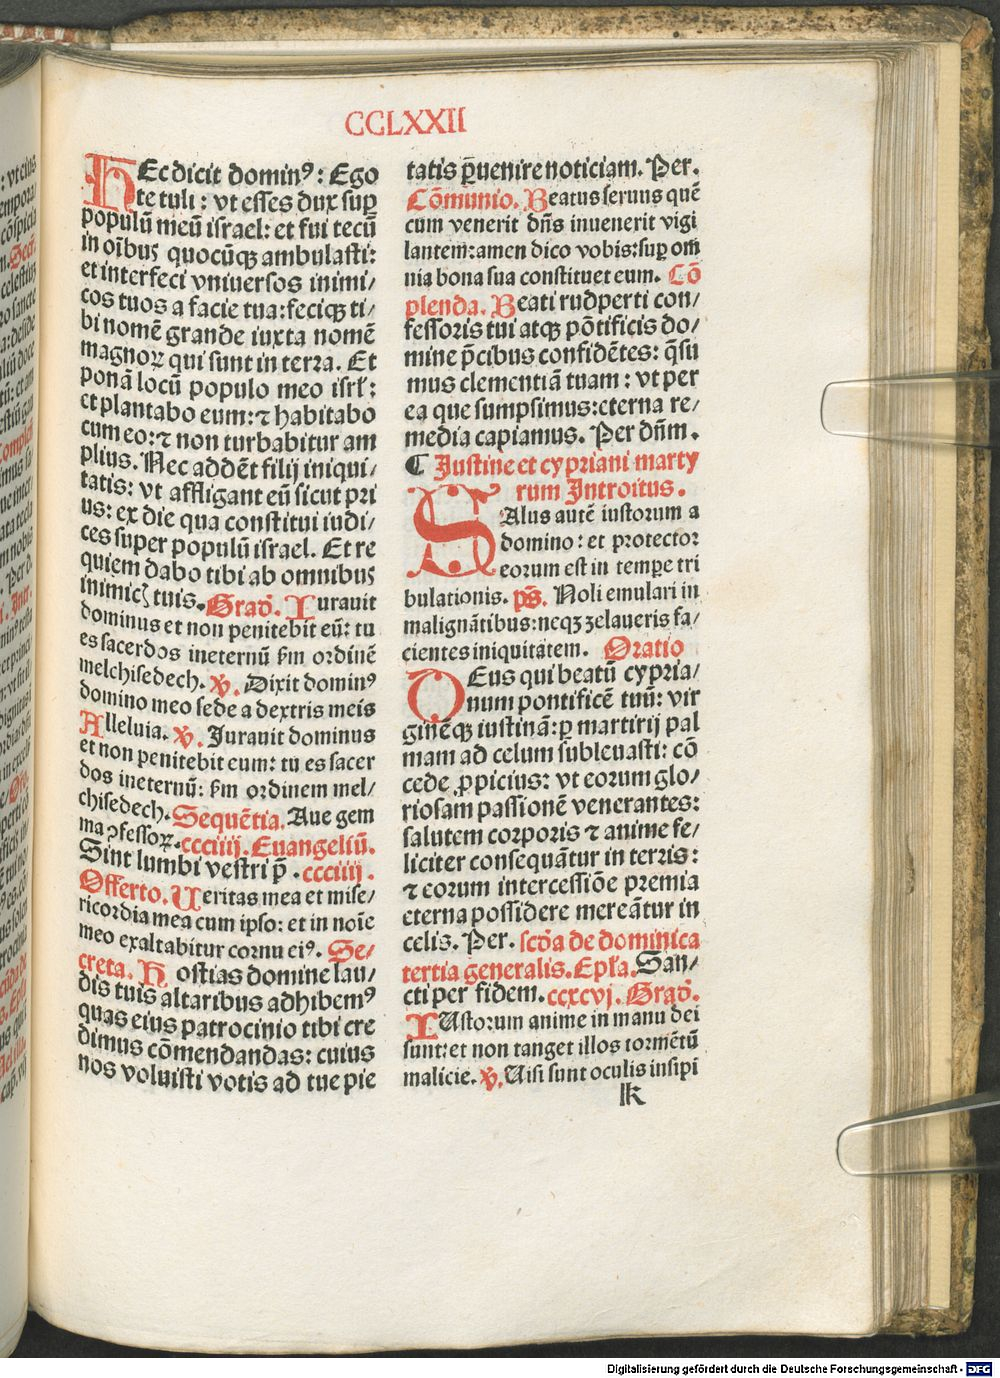 CCLXXII
HEc dicit dominꝰ: Ego
te tuli: vt esses dux suꝑ
populū meū israel: et fui tecū
in oībus quocūqꝫ ambulasti:
et interfeci vniuersos inimi/
cos tuos a facie tua: feciqꝫ ti/
bi nomē grande iuxta nomē
magnoꝝ qui sunt in terra. Et
ponā locū populo meo isrł:
et plantabo eum: ⁊ habitabo
cum eo: ⁊ non turbabitur am
plius. Nec addēt filij iniqui/
tatis: vt affligant eū sicut pri
us: ex die qua constitui iudi/
ces super populū israel. Et re
quiem dabo tibi ab omnibus
inimicꝭ tuis. Grad̄. Iurauit
dominus et non penitebit eū: tu
es sacerdos ineternū ẜm ordinē
melchisedech. ℣. Dixit dominꝰ
domino meo sede a dextris meis
Alleluia. ℣. Jurauit dominus
et non penitebit eum: tu es sacer
dos ineternū: ẜm ordinem mel/
chisedech. Sequētia. Aue gem
ma ꝯfessoꝝ. ccciiij. Euangeliū.
Sint lumbi vestri p̄. ccciiij.
Offerto. Ueritas mea et mise/
ricordia mea cum ipso: et in noīe
meo exaltabitur cornu eiꝰ. Se/
creta. Hostias domine lau/
dis tuis altaribus adhibemꝰ
quas eius patrocinio tibi cre
dimus cōmendandas: cuius
nos voluisti votis ad tue pie
tatis ꝑuenire noticiam. Per.
Cōmunio. Beatus seruus quē
cum venerit dn̄s inuenerit vigi
lantem: amen dico vobis: suꝑ om
nia bona sua constituet eum. Cō
plenda. Beati rudperti con/
fessoris tui atqꝫ pōtificis do/
mine p̄cibus confidētes: q̄su
mus clementiā tuam: vt per
ea que sumpsimus: eterna re/
media capiamus. Per dn̄m.
⸿ Justine et cypriani marty
rum Introitus.
SAlus autē iustorum a
domino: et protector
eorum est in tempe tri
bulationis. ps̄. Noli emulari in
malignātibus: neqꝫ zelaueris fa/
cientes iniquitatem. Oratio
DEus qui beatū cypria/
num pontificē tuū: vir
ginēqꝫ iustinā: ꝑ martirij pal
mam ad celum subleuasti: cō
cede ꝓpicius: vt eorum glo/
riosam passionē venerantes:
salutem corporis ⁊ anime fe/
liciter consequātur in terris:
⁊ eorum intercessiōe premia
eterna possidere mereātur in
celis. Per. scd̄a de dominica
tertia generalis. Epła. San/
cti per fidem. ccxcvj. Grad̄.
IUstorum anime in manu dei
sunt: et non tanget illos tormētū
malicie. ℣. Uisi sunt oculis insipi
lk
Digitalisierung gefördert durch die Deutsche Forschungsgemeinschaft - DFG